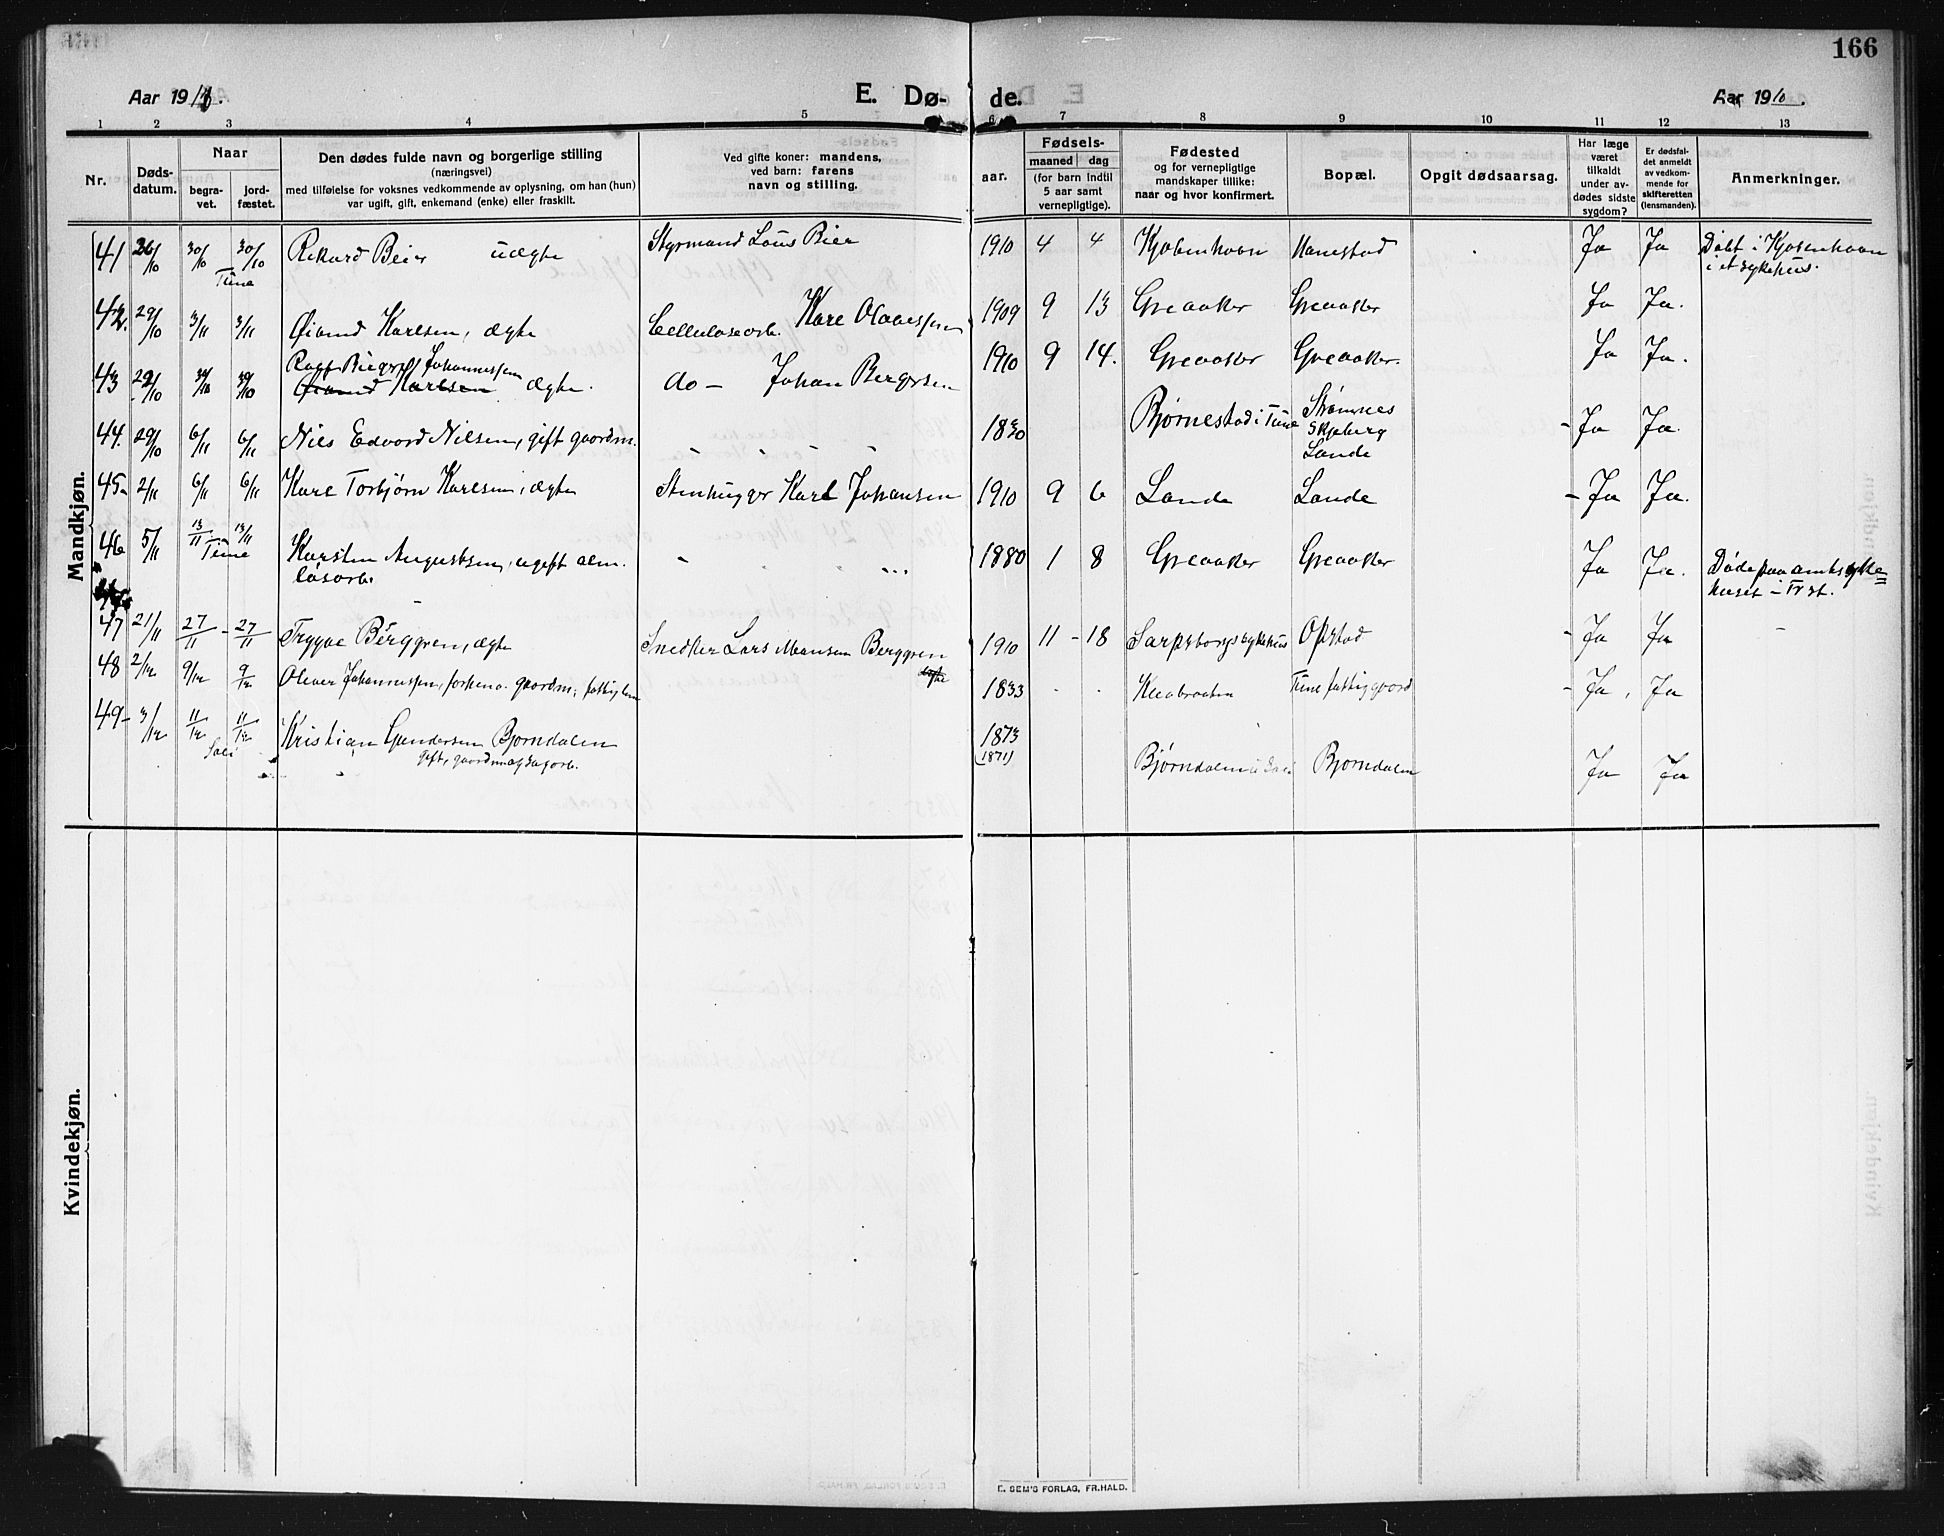 166
Aar 19
E. Dø-
de.
Aar 1910.
1 2 3 4 5 6 7 8 9 10 11 12 13
Nr.
Døds-
datum.
Naar
begra-
vet.
jord-
fæstet.
Den dødes fulde navn og borgerlige stilling
(næringsvei)
med tilføielse for voksnes vedkommende av oplysning, om han (hun)
var ugift, gift, enkemand (enke) eller fraskilt.
Ved gifte koner: mandens,
ved barn: farens
navn og stilling.
Fødsels-
aar.
maaned dag
(for barn indtil
5 aar samt
vernepligtige).
Fødested
og for vernepligtige
mandskaper tillike:
naar og hvor konfirmert.
Bopæl.
Opgit dødsaarsag.
Har læge
været
tilkaldt
under av-
dødes sidste
sygdom?
Er dødsfal-
det anmeldt
av vedkom-
mende for
skifteretten
(lensmanden).
Anmerkninger.
Mandkjøn.
41 26/10 30/10 30/10 Rikard Beier uægte Styrmand Louis Beier 1910 4 4 Kjøbenhavn Hanestad Ja Ja Døbt i Kjøbenhavn
Tune i et sykehus.
42. 29/10 3/11 3/11 Øivind Karlsen, ægte Cellulosearb. Kare Olavessen 1909 9 13 Greaaker Greaaker Ja Ja.
Johannessen
43 22/10 30/10 30/10 Øivind Karlsen ægte. do — Johan Bergersen 1910 9 14. Greaaker Greaaker. Ja Ja.
44. 29/10 6/11 6/11 Niels Edvard Nilsen, gift gaardm. 1830 Bjørnestad i Tune Strømnes
Skjeberg
Lande - Ja Ja.
45- 2/11 6/11 6/11 Kare Torbjørn Karlsen, ægte Stenhugger Karl Johansen 1910 9 6 Lande Lande - Ja Ja.
46 5/11 13/11 13/11 Karsten Augustsen, ugift alm. 1880 1 8 Greaaker Greaaker Ja Ja. Døde paa amtssyke=
Tune løsarb. huset i Fr.st.
47 21/11 27/11 - 27/11 Trygve Berggren, ægte Snedker Lars Monsen Berggren 1910 11 - 18 Sarpsborg sykehus Opstad - Ja Ja -
48 2/12 9/12 9/12 Oliver Johannessen, forhenv. gaardm., fattiglem 1833 Kleabraaten Tune fattiggaard - Ja, Ja
49- 3/12 11/12 11/12 Kristian Gundersen Bjørndalen 1873
(1871)
Soli gift, gaardm og sagarb. Bjørndalen i Soli Bjørndalen Ja Ja
Kvindekjøn.
E. SEM'S FORLAG, FR.HALD.